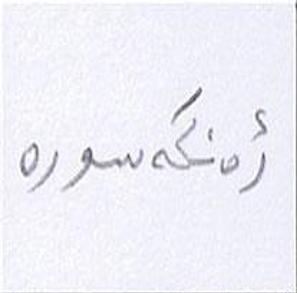 ژەنگەسورە